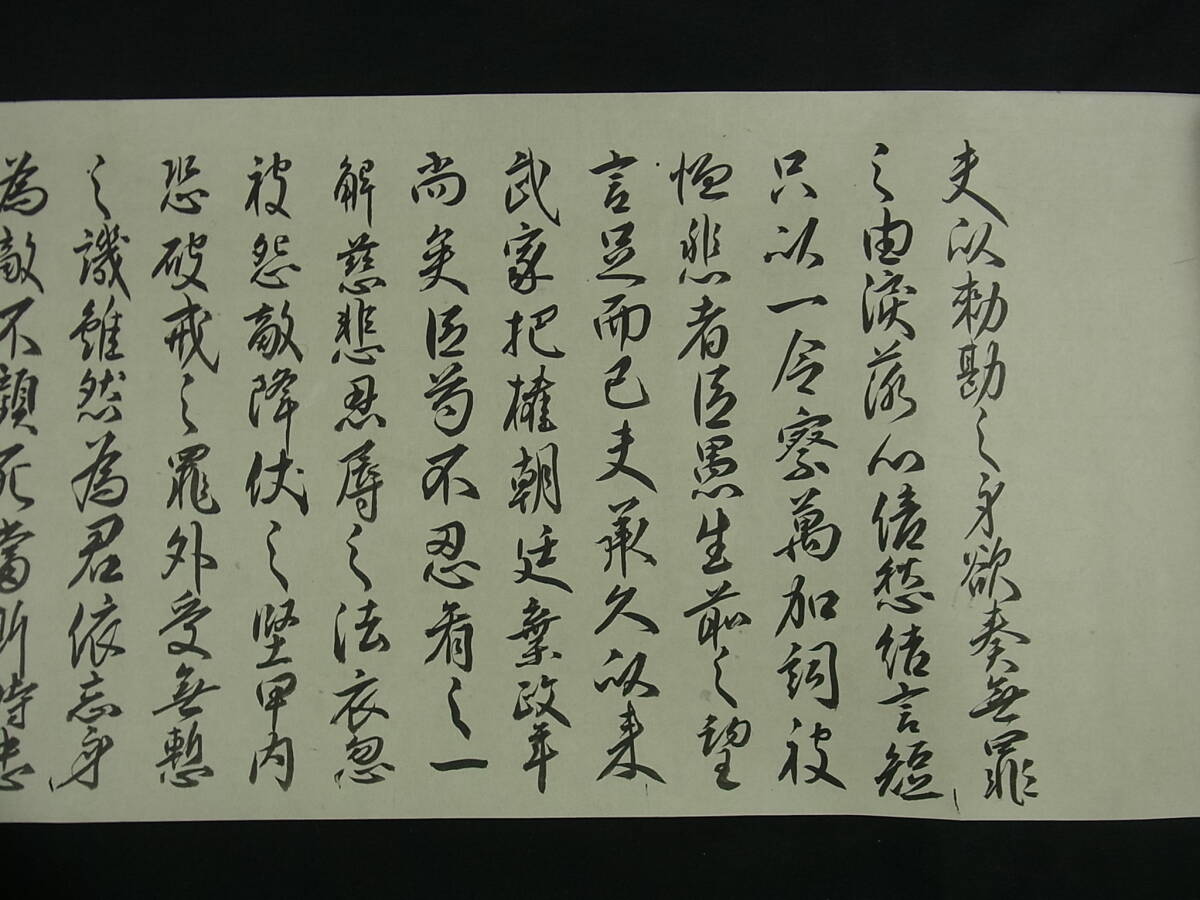 夫以勅勘之身欲奏無罪
之由涙落心倩愁結言短
只以一令察萬加詞被
恤悲者臣愚生前之望
言足而已夫承久以来
武家把權朝廷棄政年
尚矣臣苟不忍看之一
解慈悲忍辱之法衣忽
被怨敵降伏之堅甲内
恐破戒之罪外受無慙
之譏雖然為君依忘身
為敵不顧死當斯時忠